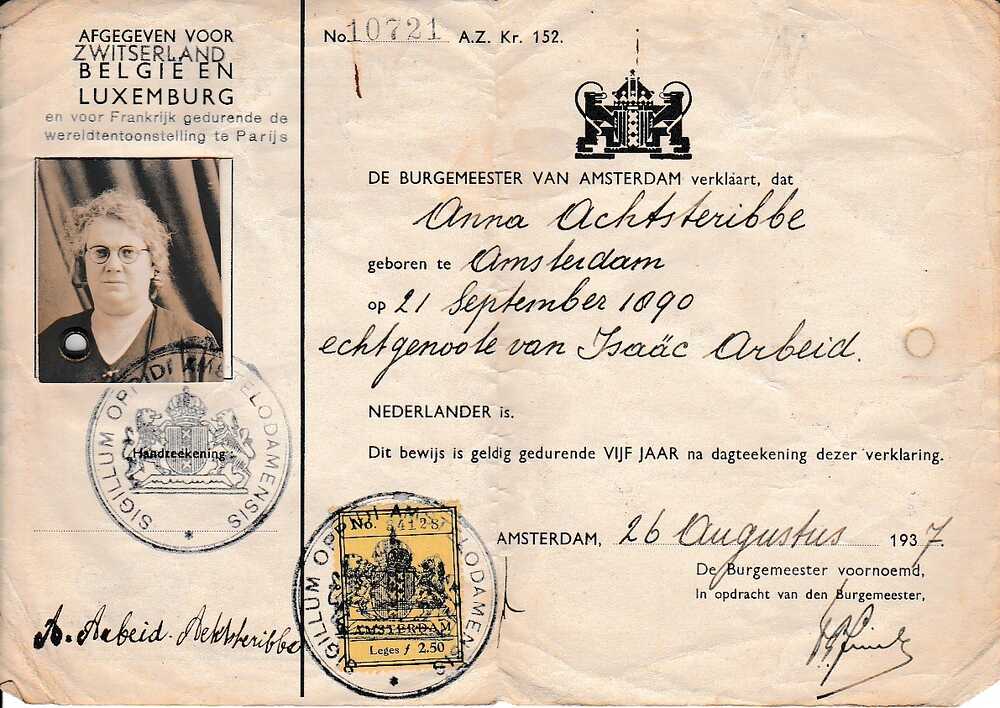 AFGEGEVEN VOOR
ZWITSERLAND
BELGIË EN
LUXEMBURG
en voor Frankrijk gedurende de
wereldtentoonstelling te Parijs
SIGILLUM OPPIDI AMSTELODAMENSIS
Handteekening:
A. Arbeid-Achtsteribbe
No. 10721 A.Z. Kr. 152.
DE BURGEMEESTER VAN AMSTERDAM verklaart, dat
Anna Achtsteribbe
geboren te Amsterdam
op 21 September 1890
echtgenoote van Isaäc Arbeid.
NEDERLANDER is.
Dit bewijs is geldig gedurende VIJF JAAR na dagteekening dezer verklaring.
AMSTERDAM, 26 Augustus 1937.
De Burgemeester voornoemd,
In opdracht van den Burgemeester,
SIGILLUM OPPIDI AMSTELODAMENSIS
No. 54128
AMSTERDAM
Leges ƒ 2.50